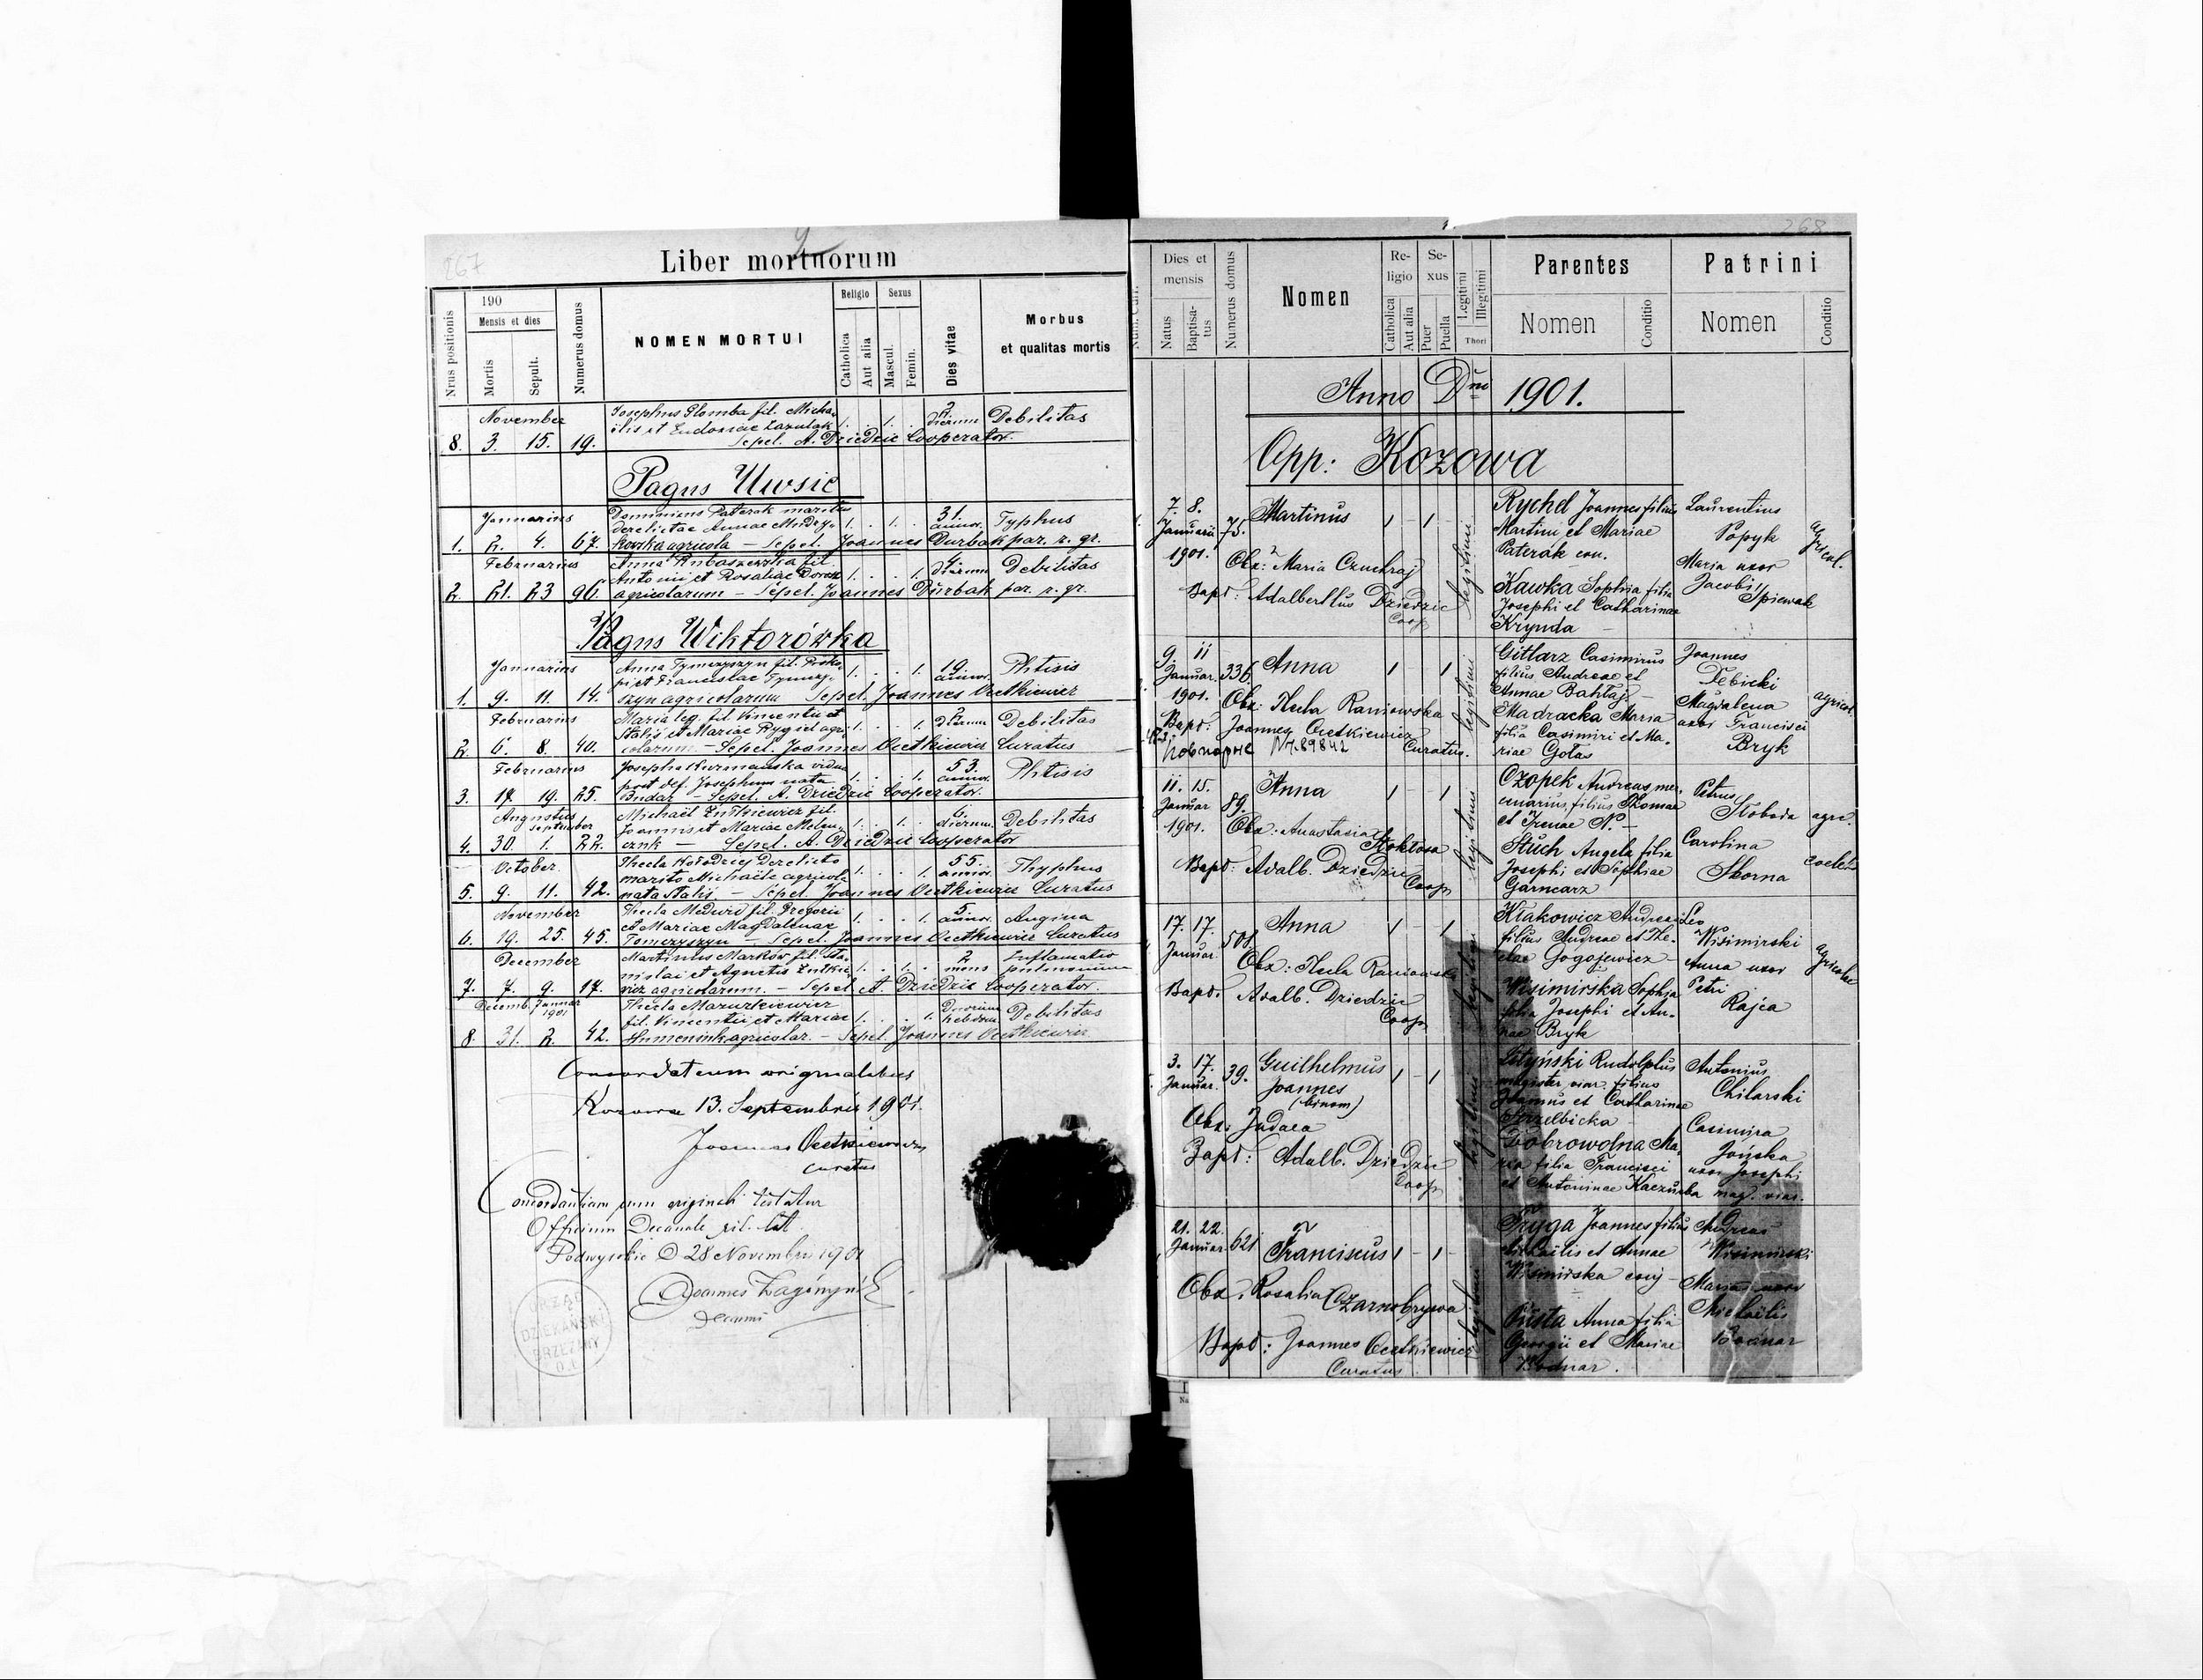 267
Liber mortuorum
Nrus positionis
190
Mensis et dies
Mortis
Sepult.
Numerus domus
NOMEN MORTUI
Religio
Catholica
Aut alia
Sexus
Mascul.
Femin.
Dies vitae
Morbus
et qualitas mortis
November
8. 3. 15. 19.
Josephus Glomba fil. Micha-
ëlis et Eudoxiae Lazulak 1. 1. 2 dierum Debilitas
Sepel. A. Dziedzic Cooperator.
Pagus Uwsie
Januarius
Dominicus Paterak maritus
derelictae Annae Mudry- 1. 1. 31. annor. Typhus
1. 2. 4. 67. kowska agricola – Sepel. Joannes Durbak par. r. gr.
Februarius
Anna fil.
Antonii et Rosaliae 1. 1. 4 dierum Debilitas
2. 21. 23 96. agricolarum – Sepel. Joannes Durbak par. r. gr.
Pagus Wiktorówka
Januarius
Anna Tymczyszyn fil. Proko-
pi et Franciscae Tymczy- 1. 1. 19. annor. Phtisis
1. 9. 11. 14. szyn agricolarum Sepel. Joannes Ocetkiewicz
Februarius
Maria leg. fil. Vincentii et
Stalis et Mariae Rygiel agri- 1. 1. 2 dierum Debilitas
2. 6. 8. 40. colarum – Sepel. Joannes Ocetkiewicz Curatus
Februarius
Josepha Kurmanska vidua
post def. Josephum nata 1. 1. 53. annor. Phtisis
3. 17. 19. 25. Bndar – Sepel. A. Dziedzic Cooperator.
Augustus
September
Michaël Zutkiewicz fil.
Joannis et Mariae Melen- 1. 1. 6 dierum Debilitas
4. 30. 1. 22. cznk – Sepel. A. Dziedzic Cooperator
October
Thecla Kołodziej derelicto
marito Michaële agricola 1. 1. 55. annor. Thyphus
5. 9. 11. 42. nata Stalis – Sepel. Joannes Ocetkiewicz Curatus
November
Thecla Medwid fil. Gregorii
et Mariae Magdalenae 1. 1. 5 annor. Angina
6. 19. 25. 45. Tomczyszyn – Sepel. Joannes Ocetkiewicz Curatus
December
Martinus Marków fil. Sta-
nislai et Agnetis Zutkie- 1. 1. 2 mens Inflamatio pulmonum
7. 7. 9. 17. wicz agricolarum. – Sepel. A. Dziedzic Cooperator.
Decemb. Januar 1901
Thecla Mazurkiewicz
fil. Vincentii et Mariae 1. 1. Duorum hebdom. Debilitas
8 31. 2. 42. Humeniuk agricolar. – Sepel. Joannes Ocetkiewicz
Concordat cum originalibus
Kozowa 13. Septembris 1901.
Joannes Ocetkiewicz
curatus
Concordantiam cum originali testatur
Officium Decanale rit. lat.
Podwysokie D 28 Novembri 1901
Decanus
URZĄD
DZIEKAŃSKI
BRZEŻANY
O. Ł.
268
Dies et mensis
Natus
Baptisatus
Numerus domus
Nomen
Religio
Catholica
Aut alia
Sexus
Puer
Puella
Legitimi
Illegitimi
Thori
Parentes
Nomen
Conditio
Patrini
Nomen
Conditio
Anno Dni 1901.
Opp: Kozowa
7. 8. Januarii 1901. 75.
Martinus 1 – 1
Obx: Maria Czuchraj
Bapt: Adalbertus Dziedzic
Coop.
legitimi
Rychel Joannes filius
Martini et Mariae
Paterak con.
Kawka Sophia filia
Josephi et Catharinae
Krynda –
Laurentius
Popyk
Maria uxor
Jacobi Spiewak
agricol.
9 11 Januar. 1901. 336.
Anna 1 – 1
Obx: Thecla Raniowska
Bapt: Joannes Ocetkiewicz
Curatus.
повторне №89842
legitimi
Gitlarz Casimirus
filius Andreae et
Annae Bahtaj –
Madracka Maria
filia Casimiri et Ma-
riae Gołas
Joannes
Debicki
Magdalena
uxor Francisci
Bryk
agricol.
11. 15. Januar 1901. 89.
Anna 1 – 1
Obx: Anastasia Stoktosa
Bapt: Adalb. Dziedzic
Coop.
legitimi
Czopek Andreas mer-
cenarius, filius Thomae
et Irenae N. –
Stuch Angela filia
Josephi et Sophiae
Garncarz
Petrus
Słoboda
Carolina
Skorna
agr.
coelebs
17. 17. Januar. 508.
Anna 1 – 1
Obx: Thecla Raniowska
Bapt. Adalb. Dziedzic
Coop.
Krakowicz Andreas
filius Andreae et The-
clae Gogojewicz –
Wisimirska Sophia
filia Josephi et An-
nae Bryk
Leo
Wisimirski
Anna uxor
Petri
Rajca
agricolae
3. 17. Januar. 39.
Guilhelmus
Joannes
(binom)
1 – 1
Obx: Judaea
Bapt: Adalb. Dziedzic
Coop.
Lityński Rudolphus
magister viar. filius
Joannis et Catharinae
Strzelbicka –
Dobrowolna Ma-
ria filia Francisci
et Antoninae Kaczurba
Antonius
Chilarski
Casimira
Jońska
uxor Josephi
mag. viar.
21. 22. Januar. 621
Franciscus 1 – 1
Obx. Rosalia Czarnobrywa
Bapt: Joannes Ocetkiewicz
Curatus.
Fryga Joannes filius
Michaëlis et Annae
Wisimirska conj –
Pusta Anna filia
Georgii et Mariae
Bodnar.
Andreas
Wisimirski
Maria uxor
Michaëlis
Bodnar